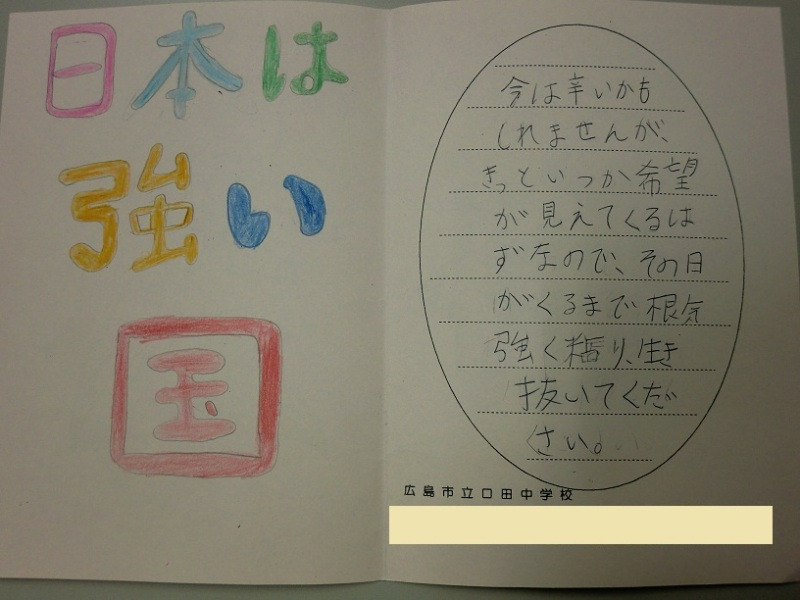 日本は
強い
国
今は辛いかも
しれませんが、
きっといつか希望
が見えてくるは
ずなので、その日
がくるまで根気
強く粘り、生き
抜いてくだ
さい。
広島市立口田中学校